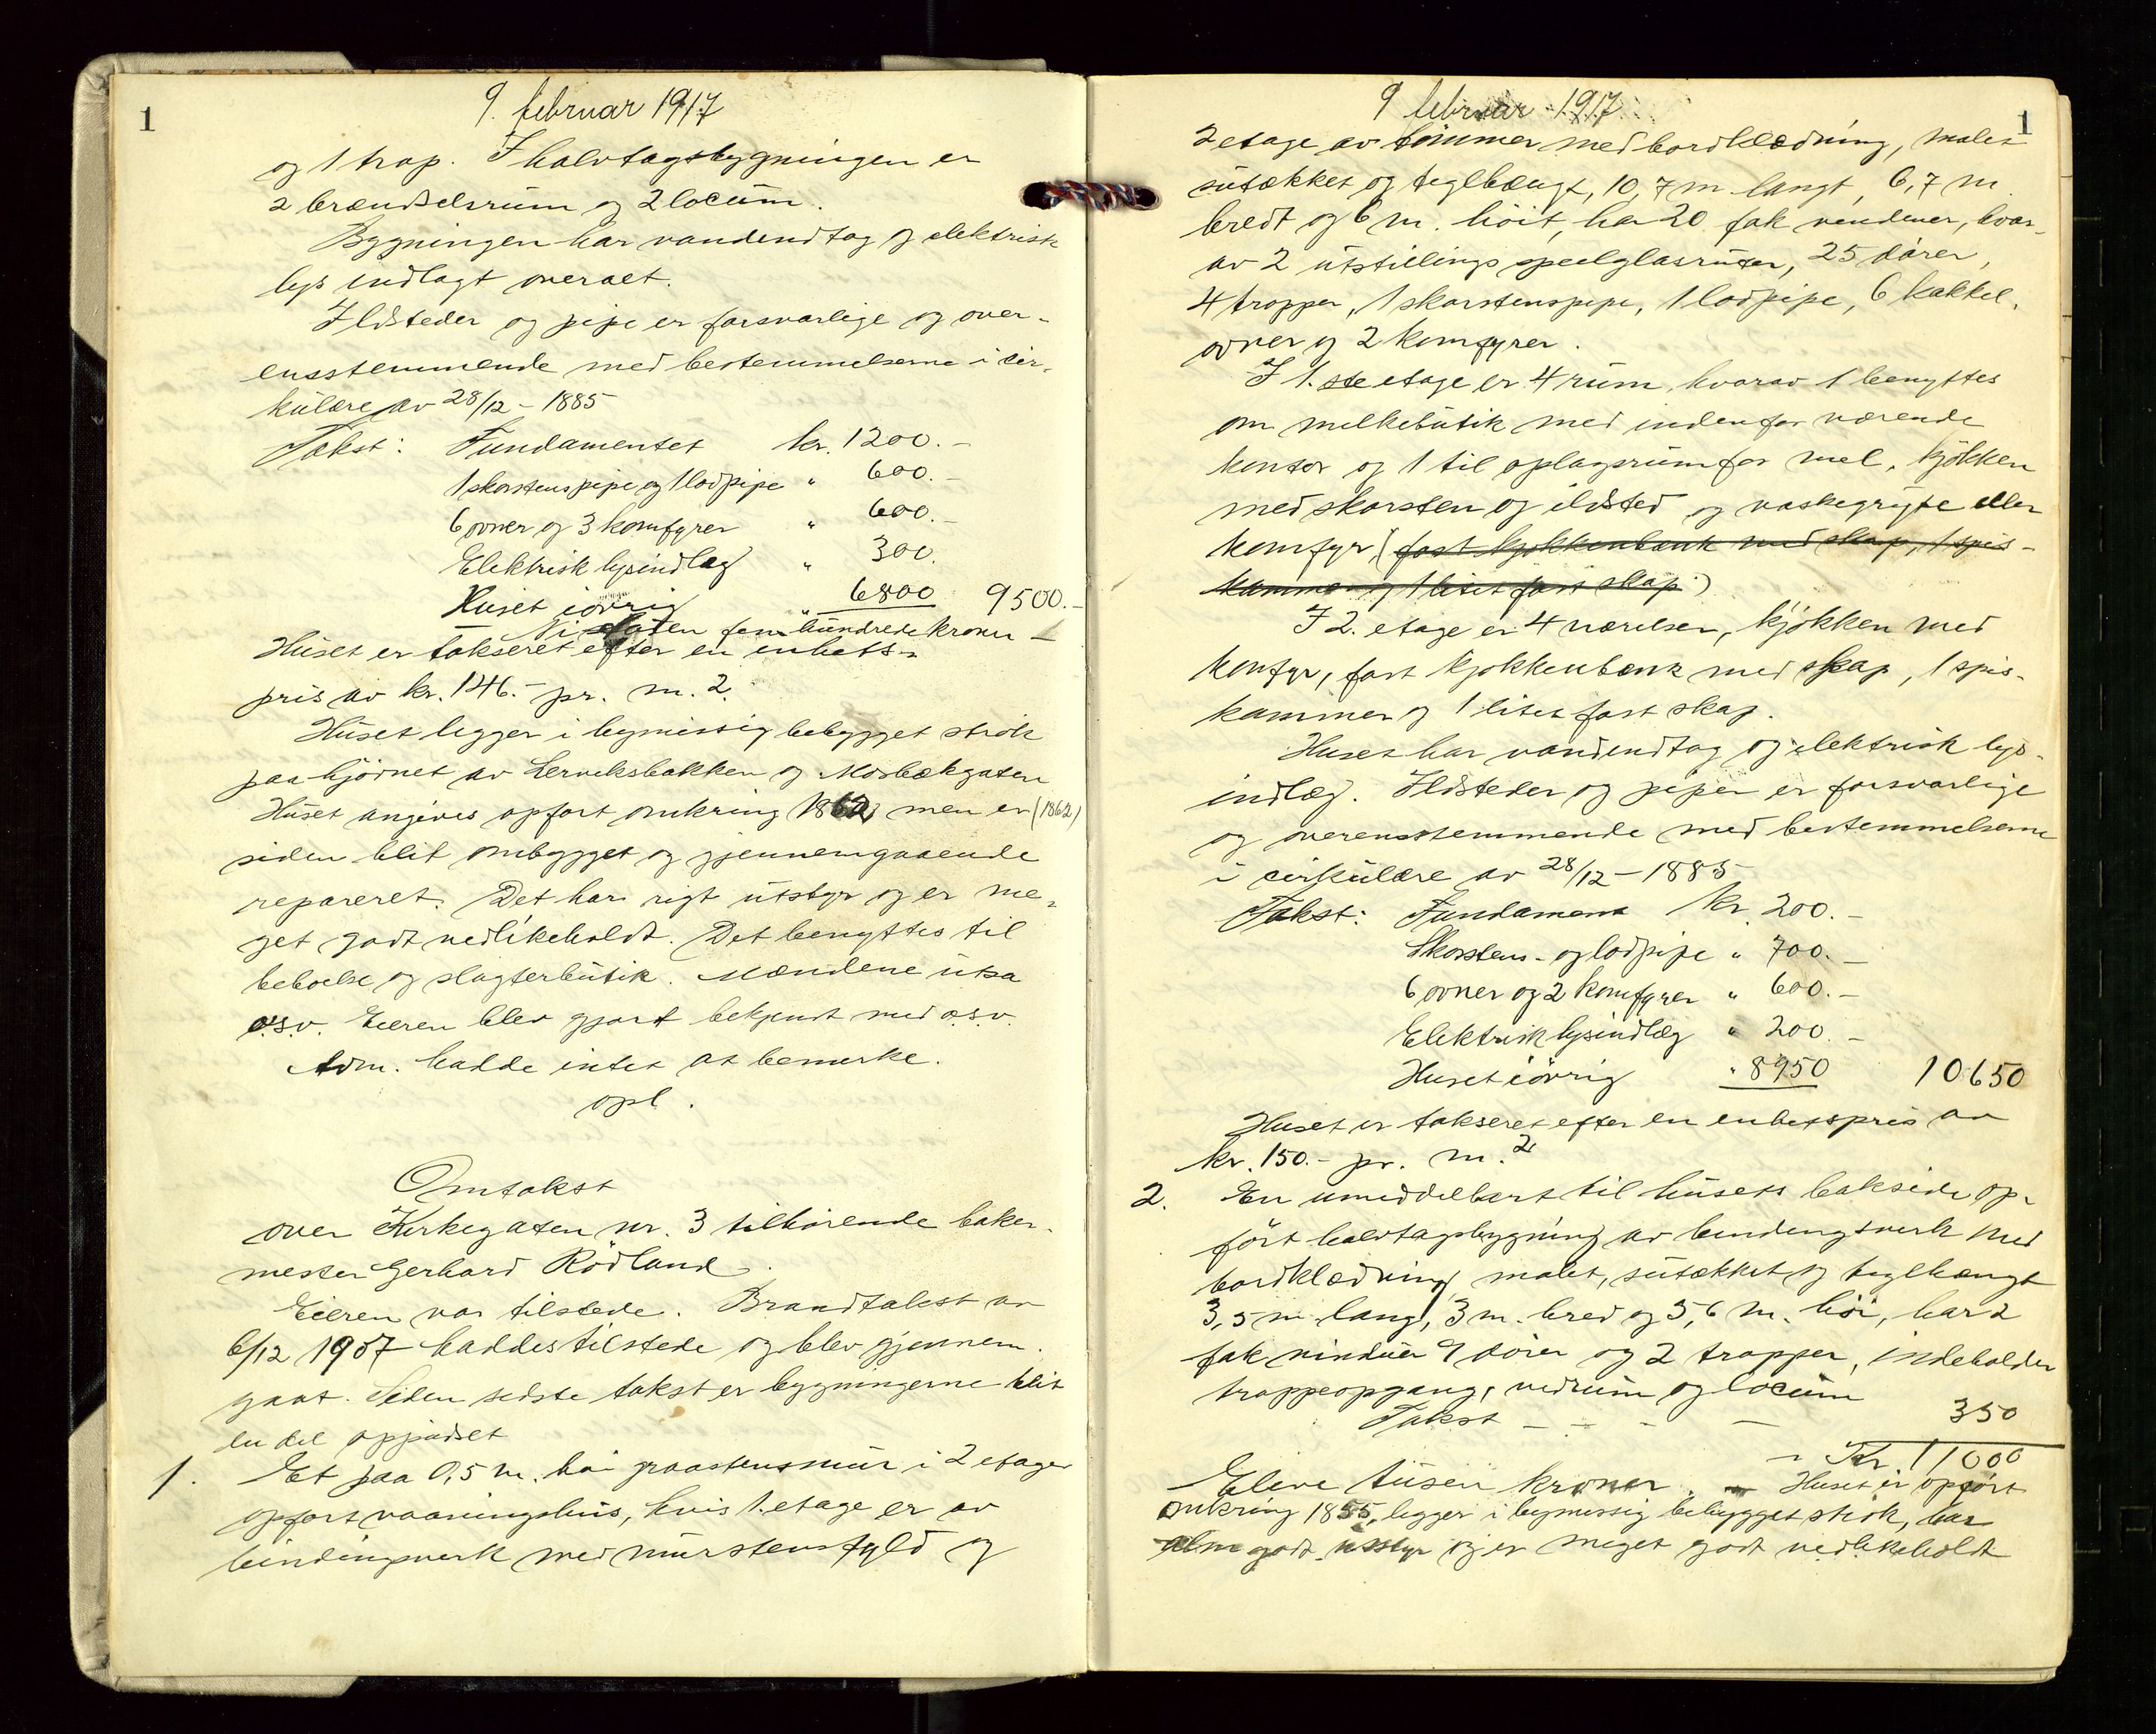 1
9. februar 1917
og 1 trap. I halvtagsbygningen er
2 brændselsrum og 2 locum.
Bygningen har vandindtag og elektrisk
lys indlagt overalt.
Ildsteder og pipe er forsvarlige og over-
ensstemmende med bestemmelserne i cir-
kulære av 28/12 - 1885
Takst: Fundamentet kr. 1200.-
1 skorstenspipe og 1 lodpipe " 600.-
6 ovner og 3 komfyrer " 600.-
Elektrisk lysindlæg " 300.
Huset iövrig " 6800 9500.-
Ni tusen fem hundrede kroner -
Huset er takseret efter en enhets-
pris av kr. 146.- pr. m.2.
Huset ligger i bymessig bebygget strök
paa hjörnet av Lerviksbakken og Mosbækgaten
Huset angives opfört omkring 1862, men er (1862)
siden blit ombygget og gjennemgaaende
repareret. Det har rigt utstyr og er me-
get godt vedlikeholdt. Det benyttes til
beboelse og slagterbutik. Mændene utsa
o.s.v. Eieren blev gjort bekjendt med o.s.v.
Adm. hadde intet at bemerke.
opl.
Omtakst
over Kirkegaten nr. 3 tilhörende baker-
mester Gerhard Rödland.
Eieren var tilstede. Brandtakst av
6/12 1907 haddes tilstede og blev gjennem-
gaat. Siden sidste takst er bygningerne blit
en del oppudset
1. Et paa 0,5 m. höi graastensmur i 2 etager
opfört vaaningshus, hvis 1. etage er av
bindingsverk med murstensfyld og
9 februar 1917
1
2 etage av tömmer med bordklædning, malet
sutækket og teglhængt, 10,7 m langt, 6,7 m.
bredt og 6 m. höit, har 20 fak vinduer, hvor-
av 2 utstillings speilglasruter, 25 dörer,
4 trapper, 1 skorstenspipe, 1 lodpipe, 6 kakkel-
ovner og 2 komfyrer.
I 1.ste etage er 4 rum, hvorav 1 benyttes
om melkebutik med indenfor værende
kontor og 1 til oplagsrum for mel, kjökken
med skorsten og ildsted og vaskegryte eller
komfyr, (fast kjökkenbænk med skap, 1 spis-
kammer og 1 litet fast skap.)
I 2. etage er 4 værelser, kjökken med
komfyr, fast kjökkenbænk med skap, 1 spis-
kammer og 1 litet fast skap.
Huset har vandindtag og elektrisk lys-
indlæg. Ildsteder og piper er forsvarlige
og overensstemmende med bestemmelserne
i cirkulære av 28/12 - 1885
Takst: Fundament kr. 200.-
Skorstens- og lodpipe " 700.-
6 ovner og 2 komfyrer " 600.-
Elektrisk lysindlæg " 200.-
Huset iövrig " 8950 10650
Huset er takseret efter en enhetspris av
kr. 150.- pr. m.2
2. En umiddelbart til husets bakside op-
fört halvtagsbygning av bindingsverk med
bordklædning, malet, sutækket og teglhængt
3,5 m lang, 3 m. bred og 5,6 m. höi, har 2
fak vinduer 9 dörer og 2 trapper, indeholder
trappeopgang, vedrum og locum
Takst - - - - 350
Kr. 11000
Eleve tusen kroner. - Huset er opfört
omkring 1855, ligger i bymessig bebygget strök, har
godt utstyr og er meget godt vedlikeholdt